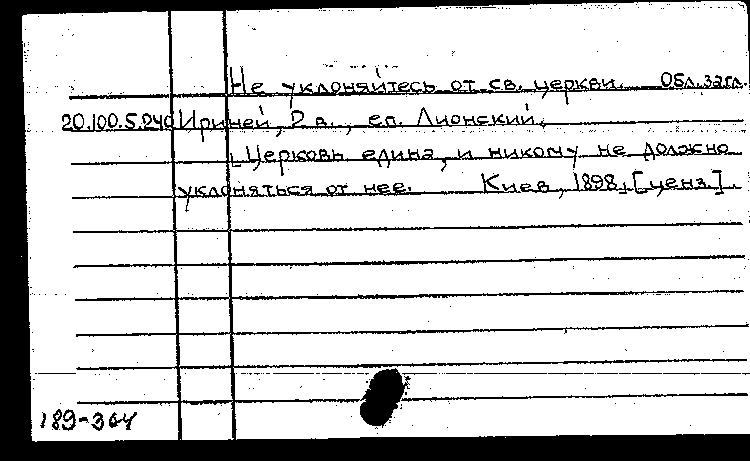 Не уклоняйтесь от св. церкви. Обл. загл.
20.100.5.240 Ириней, 2 в., еп. Лионский.
Церковь едина, и никому не должно
уклоняться от нее. Киев, 1898, [ценз.].
189-364